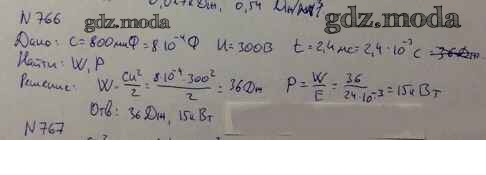 0,0272Дж, 0,54 Дж/м³ gdz.moda
N 766 gdz.moda
Дано: C=800мкФ=8·10⁻⁴Ф U=300В t=2,4мс=2,4·10⁻³с
Найти: W, P
Решение: W-Cu²/2=8·10⁻⁴·300²/2=36Дж P=W/E=36/24·10⁻³=15кВт
Отв: 36Дж, 15кВт
N 767